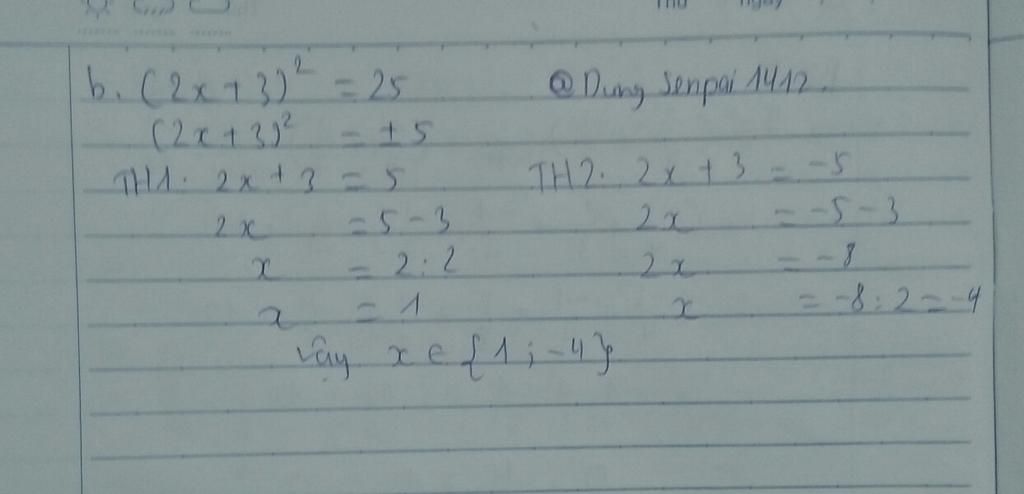 Thứ ngày
b. (2x+3)² = 25 @Dung Senpai 1412.
(2x+3)² = ±5
TH1. 2x+3 = 5 TH2. 2x+3 = -5
2x = 5-3 2x = -5-3
x = 2:2 2x = -8
x = 1 x = -8:2 = -4
Vậy x ∈ {1; -4}